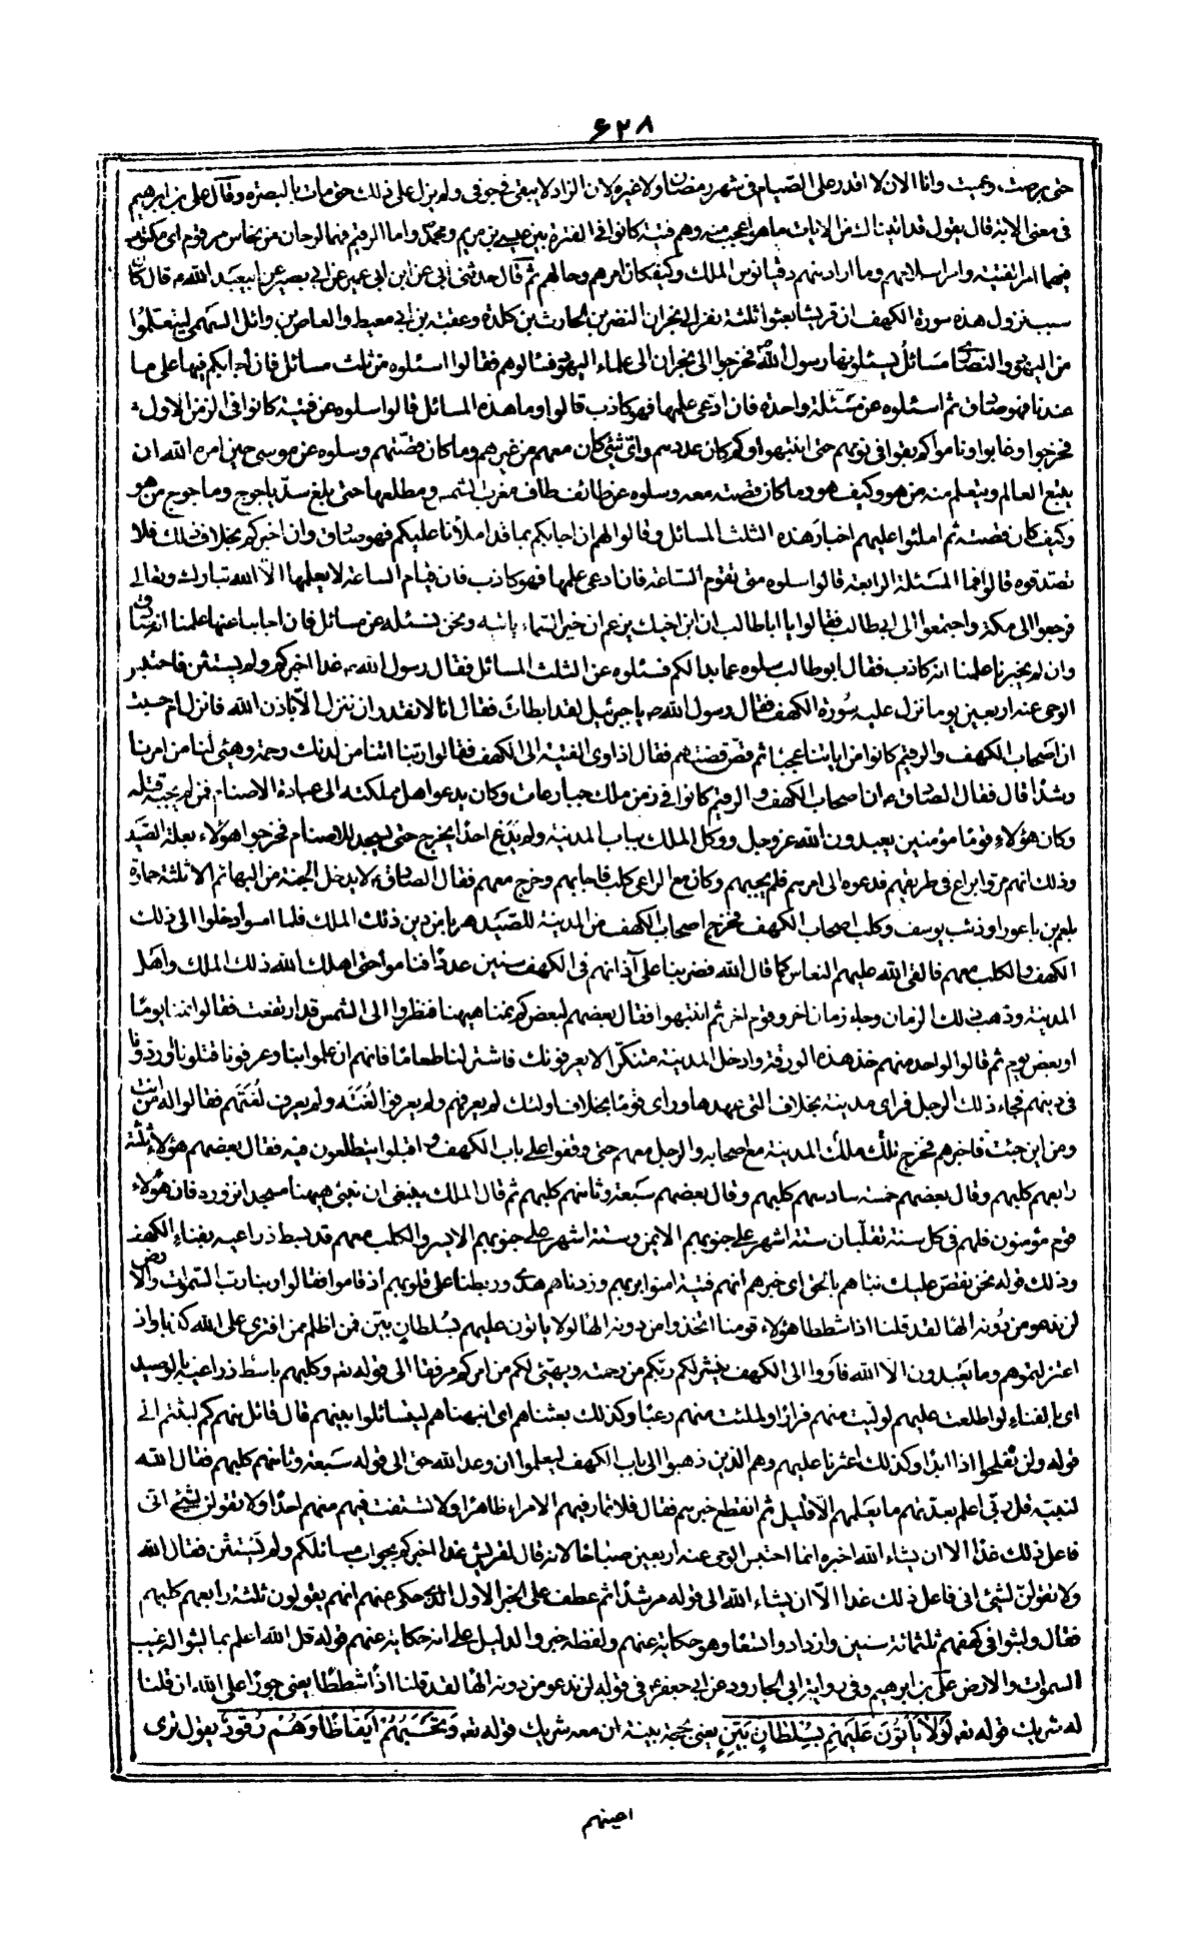 ۶۲۸
حتى برصت وعميت وانا الان لا اقدر على الصيام فى شهر رمضان ولا غيره لان الزاد لا يبقى فى جوفى ولم يزل على ذلك حتى مات بالبصرة وقال على بن ابرهيم
فى معنى الاية قال يقول قد اتيناك من الايات ما هو اعجب منه وهم فتية كانوا فى الفترة بين عيسى بن مريم ومحمدص واما الرقيم فهما لوحان من نحاس مرقوم اى مكتوب
فيهما امر الفتية وامر اسلامهم وما اراد منهم دقيانوس الملك وكيف كان امرهم وحالهم ثم قال حدثنى ابى عن ابن ابى عمير عن ابى بصير عن ابيعبد الله ع قال كان
سبب نزول هذه سورة الكهف ان قريشا بعثوا ثلثة نفر الى نجران النضر بن الحارث بن كلدة وعقبة بن ابى معيط والعاص بن وائل السهمى ليتعلموا
من اليهود والنصارى مسائل يسئلونها رسول الله ص فخرجوا الى نجران الى علماء اليهود فسئالوهم فقالوا اسئلوه من ثلث مسائل فان اجابكم فيها على ما
عندنا فهو صادق ثم اسئلوه عن مسئلة واحدة فان ادعى علمها فهو كاذب قالوا وما هذه المسائل قالوا سلوه عن فتية كانوا فى الزمن الاول
فخرجوا وغابوا وناموا كم بقوا فى نومهم حتى انتبهوا وكم كان عددهم واى شئ كان معهم من غيرهم وما كان قصتهم وسلوه عن موسى حين امره الله ان
يتبع العالم ويتعلم منه من هو وكيف هو وما كان قصته معه وسلوه عن طائف طاف مغرب الشمس ومطلعها حتى بلغ سد ياجوج وماجوج من هو
وكيف كان قصته ثم املئوا عليهم اخبار هذه الثلث المسائل وقالوا لهم ان اجابكم بما قد املأنا عليكم فهو صادق وان اخبركم بخلاف ذلك فلا
تصدقوه قالوا فما المسئلة الرابعة قالوا سلوه متى تقوم الساعة فان ادعى علمها فهو كاذب فان قيام الساعة لا يعلمها الا الله تبارك وتعالى
فرجعوا الى مكة واجتمعوا الى ابى طالب فقالوا يا ابا طالب ان ابن اخيك يزعم ان خبر السماء ياتيه ونحن نسئله عن مسائل فان اجابنا عنها علمنا انه صادق
وان لم يخبرنا علمنا انه كاذب فقال ابو طالب سلوه عما بدا لكم فسئلوه عن الثلث المسائل فقال رسول الله ص غدا اخبركم ولم يستثن فاحتبس
الوحى عنه اربعين يوما نزل عليه سورة الكهف فقال رسول الله ص يا جبرئيل لقد ابطات فقال انا لا نقدر ان ننزل الا باذن الله فانزل ام حسبت
ان اصحاب الكهف والرقيم كانوا من اياتنا عجبا ثم قص قصتهم فقال اذ اوى الفتية الى الكهف فقالوا ربنا اتنا من لدنك رحمة وهيئ لنا من امرنا
رشدا قال فقال الصادق ع ان اصحاب الكهف والرقيم كانوا فى زمن ملك جبار عات وكان يدعو اهل مملكته الى عبادة الاصنام فمن لم يجبه قتله
وكان هؤلاء قوما مؤمنين يعبدون الله عز وجل ووكل الملك بباب المدينة ولم يدع احدا يخرج حتى يسجد للاصنام فخرجوا هؤلاء بعلة الصيد
وذلك انهم مروا براع فى طريقهم فدعوه الى امرهم فلم يجبهم وكان مع الراعى كلب فاجابهم وخرج معهم فقال الصادق ع لا يدخل الجنة من البهائم الا ثلثة حمارة
بلعم بن باعورا وذئب يوسف وكلب اصحاب الكهف فخرج اصحاب الكهف من المدينة للصيد هربا من دين ذلك الملك فلما امسوا دخلوا الى ذلك
الكهف والكلب معهم فالقى الله عليهم النعاس كما قال الله فضربنا على آذانهم فى الكهف سنين عددا فناموا حتى اهلك الله ذلك الملك واهل
المدينة وذهب ذلك الزمان وجاء زمان اخر وقوم اخر ثم انتبهوا فقال بعضهم لبعض كم نمنا هيهنا فنظروا الى الشمس قد ارتفعت فقالوا نمنا يوما
او بعض يوم ثم قالوا لواحد منهم خذ هذه الورقة وادخل المدينة متنكرا لا يعرفونك فاشتر لنا طعاما فانهم ان علموا بنا وعرفونا قتلونا او ردونا
فى دينهم فجاء ذلك الرجل فراى مدينة بخلاف التى عهدها وراى قوما بخلاف اولئك لم يعرفهم ولم يعرفوا لغته ولم يعرف لغتهم فقالوا له من انت
ومن اين جئت فاخبرهم فخرج تلك ملك المدينة مع اصحابه والرجل معهم حتى وقفوا على باب الكهف و اقبلوا يتطلعون فيه فقال بعضهم هؤلاء ثلثة
رابعهم كلبهم وقال بعضهم خمسة سادسهم كلبهم وقال بعضهم سبعة وثامنهم كلبهم ثم قال الملك ينبغى ان نبنى هيهنا مسجدا نزوره فان هؤلاء
قوم مؤمنون فلهم فى كل سنة تقلبان ستة اشهر على جنوبهم الايمن وستة اشهر على جنوبهم الايسر والكلب معهم قد بسط ذراعيه بفناء الكهف
وذلك قوله نحن نقص عليك نبئاهم بالحق اى خبرهم انهم فتية امنوا بربهم وزدناهم هدى وربطنا على قلوبهم اذ قاموا فقالوا ربنا رب السموات والارض
لن ندعو من دونه الها لقد قلنا اذا شططا هؤلاء قومنا اتخذوا من دونه الها لولا ياتون عليهم بسلطان بين فمن اظلم ممن افترى على الله كذبا واذ
اعتزلتموهم وما يعبدون الا الله فأووا الى الكهف ينشر لكم ربكم من رحمته ويهيئ لكم من امركم مرفقا الى قوله تع وكلبهم باسط ذراعيه بالوصيد
اى بالفناء لو اطلعت عليهم لوليت منهم فرارا ولملئت منهم رعبا وكذلك بعثناهم اى انبهناهم ليتسائلوا بينهم قال قائل منهم كم لبثتم الى
قوله ولن تفلحوا اذا ابدا وكذلك اعثرنا عليهم وهم الذين ذهبوا الى باب الكهف ليعلموا ان وعد الله حق الى قوله سبعة وثامنهم كلبهم فقال الله
لنبيه قل ربى اعلم بعدتهم ما يعلمهم الا قليل ثم انقطع خبرهم فقال فلا تمار فيهم الا مراء ظاهرا ولا تستفت فيهم منهم احدا ولا تقولن لشئ انى
فاعل ذلك غدا الا ان يشاء الله اخبره انما احتبس الوحى عنه اربعين صباحا لانه قال لقريش غدا اخبركم بجواب مسائلكم ولم يستثن فقال الله
ولا تقولن لشئ انى فاعل ذلك غدا الا ان يشاء الله الى قوله مرشدا ثم عطف على الخبر الاول الذى حكى عنهم انهم يقولون ثلثة رابعهم كلبهم
فقال ولبثوا فى كهفهم ثلثمائة سنين وازدادوا تسعا وهو حكاية عنهم ولفظه خبر والدليل على انه حكاية عنهم قوله قل الله اعلم بما لبثوا له غيب
السموات والارض على بن ابرهيم وفى رواية ابى الجارود عن ابى جعفر ع فى قوله لن ندعو من دونه الها لقد قلنا اذا شططا يعنى جورا على الله ان قلنا
له شريك قوله تع لولا ياتون عليهم بسلطان بين يعنى بحجة بينة ان معه شريك قوله تع وتحسبهم ايقاظا وهم رقود يقول ترى
اعينهم